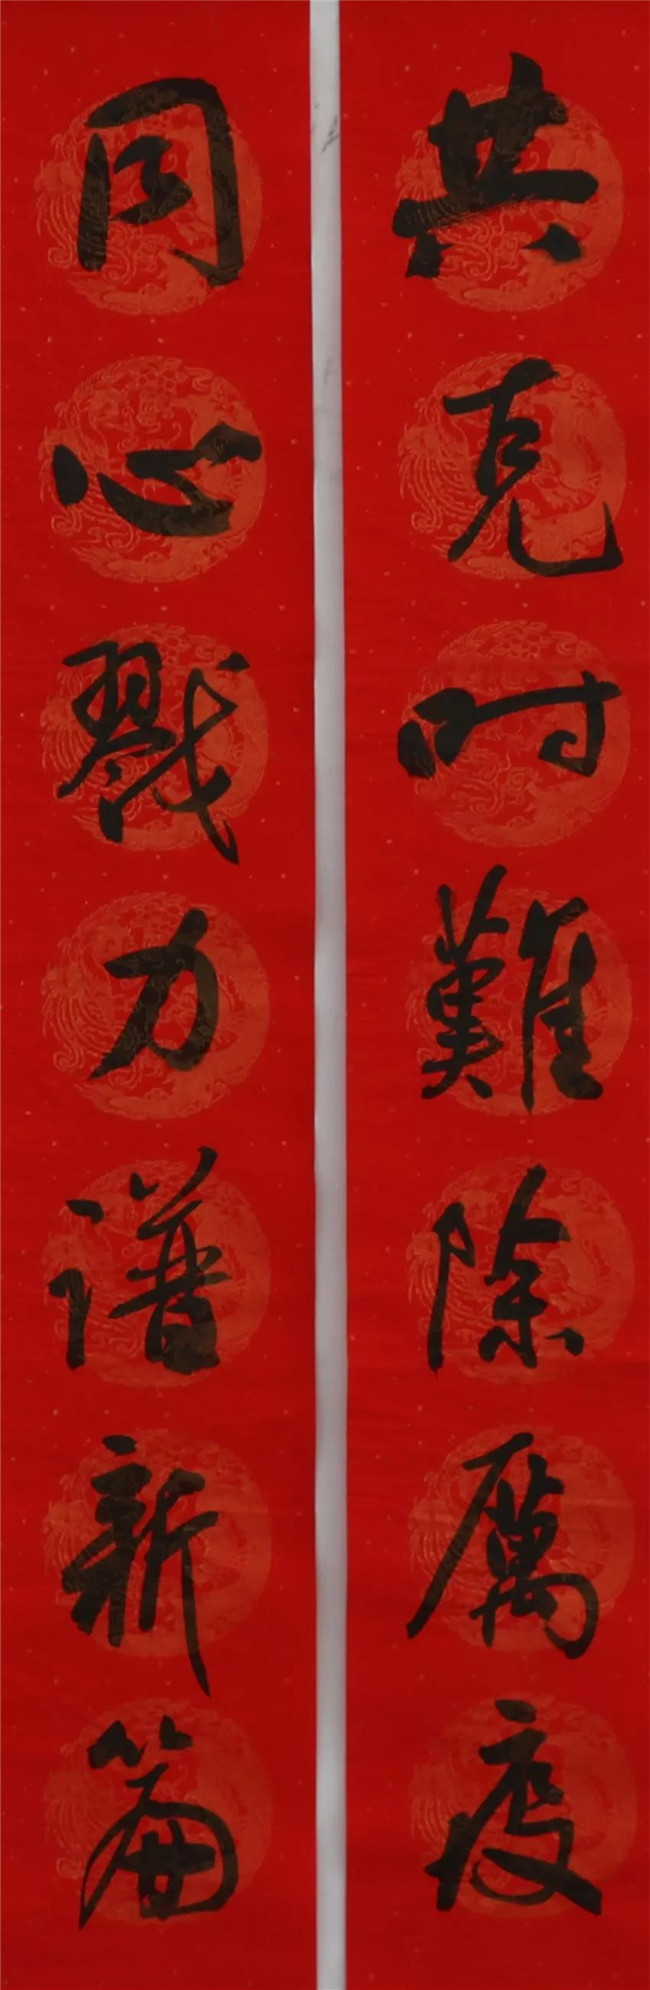 共克时難除厲疫
同心戮力谱新篇